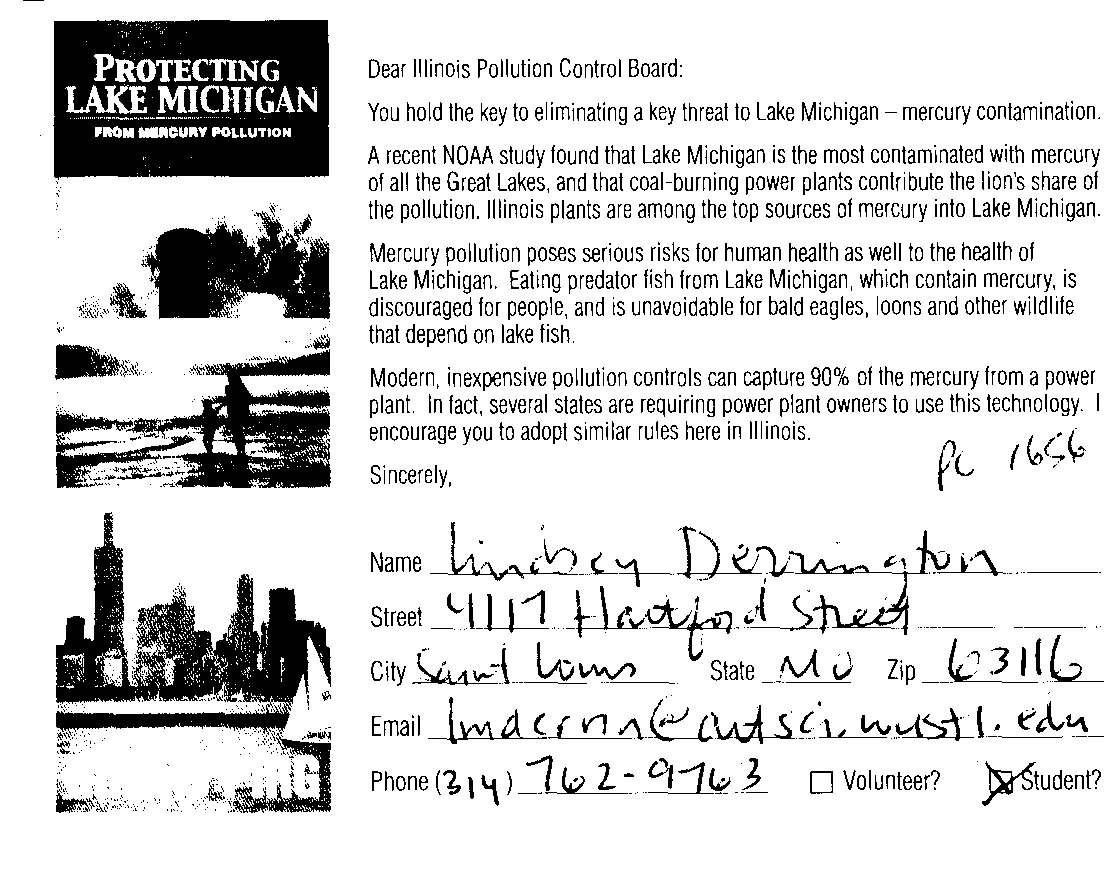 PROTECTING
LAKE MICHIGAN
FROM MERCURY POLLUTION
Dear Illinois Pollution Control Board:
You hold the key to eliminating a key threat to Lake Michigan – mercury contamination.
A recent NOAA study found that Lake Michigan is the most contaminated with mercury
of all the Great Lakes, and that coal-burning power plants contribute the lion's share of
the pollution. Illinois plants are among the top sources of mercury into Lake Michigan.
Mercury pollution poses serious risks for human health as well to the health of
Lake Michigan. Eating predator fish from Lake Michigan, which contain mercury, is
discouraged for people, and is unavoidable for bald eagles, loons and other wildlife
that depend on lake fish.
Modern, inexpensive pollution controls can capture 90% of the mercury from a power
plant. In fact, several states are requiring power plant owners to use this technology. I
encourage you to adopt similar rules here in Illinois.
PC 1656
Sincerely,
Name Lindsey Derrington
Street 4117 Hartford Street
City Saint Louis State MO Zip 63116
Email @artsci.wustl.edu
Phone (314) 762-9763 Volunteer? Student?